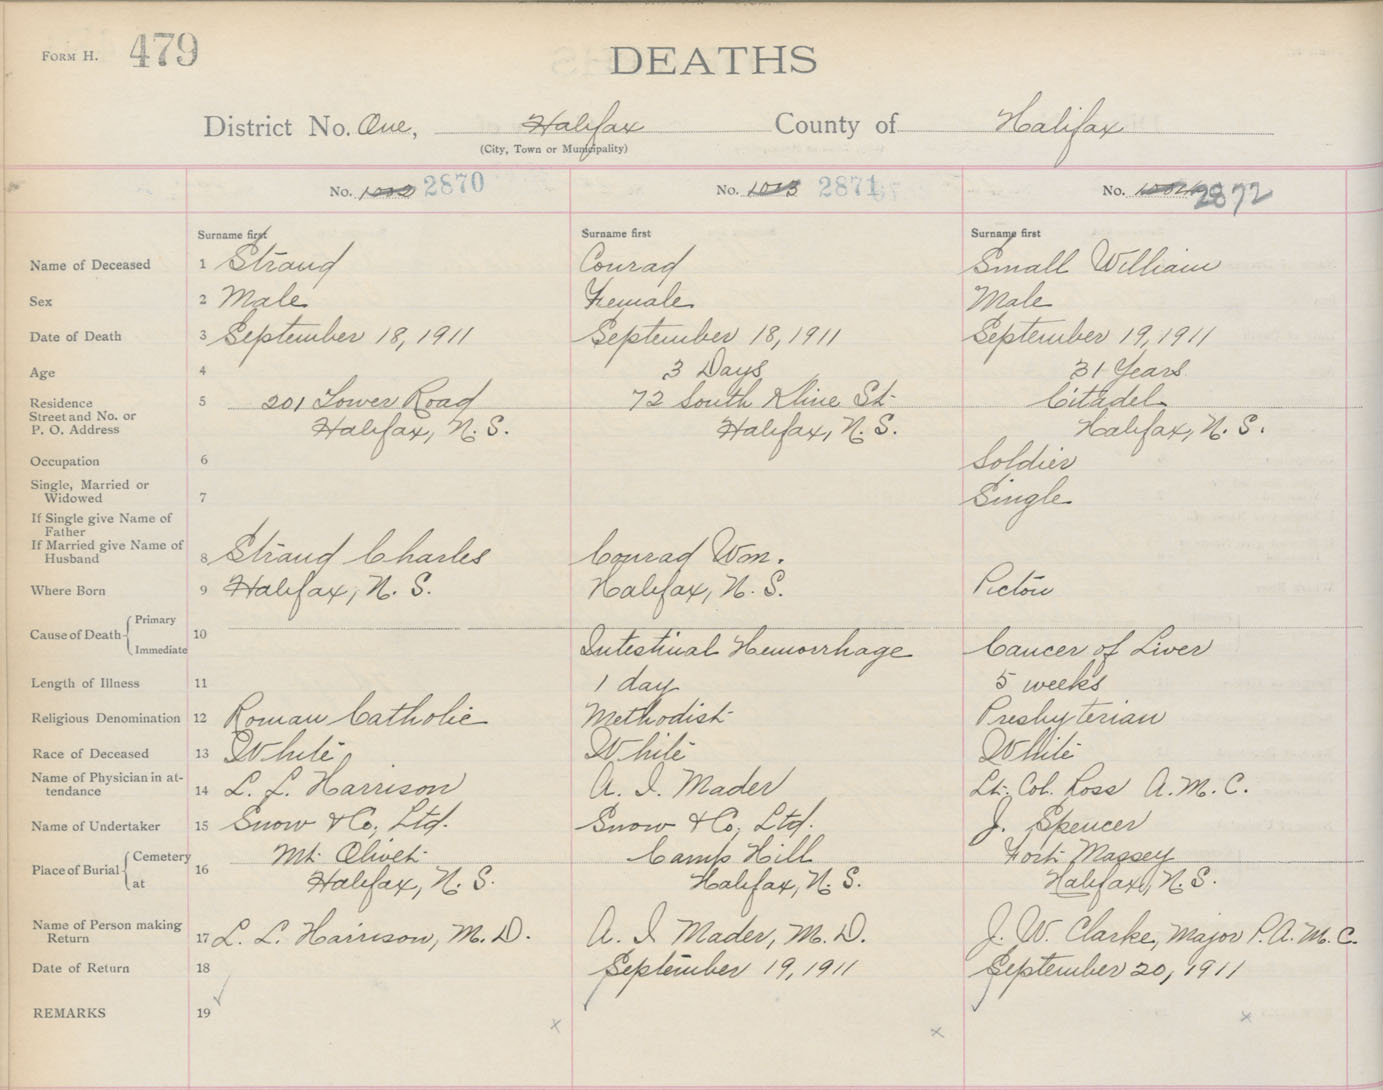 FORM H. 479
DEATHS
District No. One, Halifax County of Halifax
(City, Town or Municipality)
No. 2870 No. 1003 2871 No. 2872
Surname first Surname first Surname first
Name of Deceased 1 Straud Conrad Small William
Sex 2 Male Female Male
Date of Death 3 September 18, 1911 September 18, 1911 September 19, 1911
Age 4 3 Days 31 Years
Residence 5 201 Tower Road 72 South Kline St. Citadel
Street and No. or
P. O. Address Halifax, N. S. Halifax, N. S. Halifax, N. S.
Occupation 6 Soldier
Single, Married or
Widowed 7 Single
If Single give Name of
Father
If Married give Name of
Husband 8 Straud Charles Conrad Wm.
Where Born 9 Halifax, N. S. Halifax, N. S. Pictou
Cause of Death 10 Primary
Immediate Intestinal Hemorrhage Cancer of Liver
Length of Illness 11 1 day 5 weeks
Religious Denomination 12 Roman Catholic Methodist Presbyterian
Race of Deceased 13 White White White
Name of Physician in at-
tendance 14 L. L. Harrison A. I. Mader Lt. Col. Ross A. M. C.
Name of Undertaker 15 Snow & Co. Ltd. Snow & Co. Ltd. J. Spencer
Place of Burial 16 Cemetery Mt. Olivet Camp Hill Fort Massey
at Halifax, N. S. Halifax, N. S. Halifax, N. S.
Name of Person making
Return 17 L. L. Harrison, M. D. A. I Mader, M. D. J. W. Clarke, Major P. A. M. C.
Date of Return 18 September 19, 1911 September 20, 1911
REMARKS 19